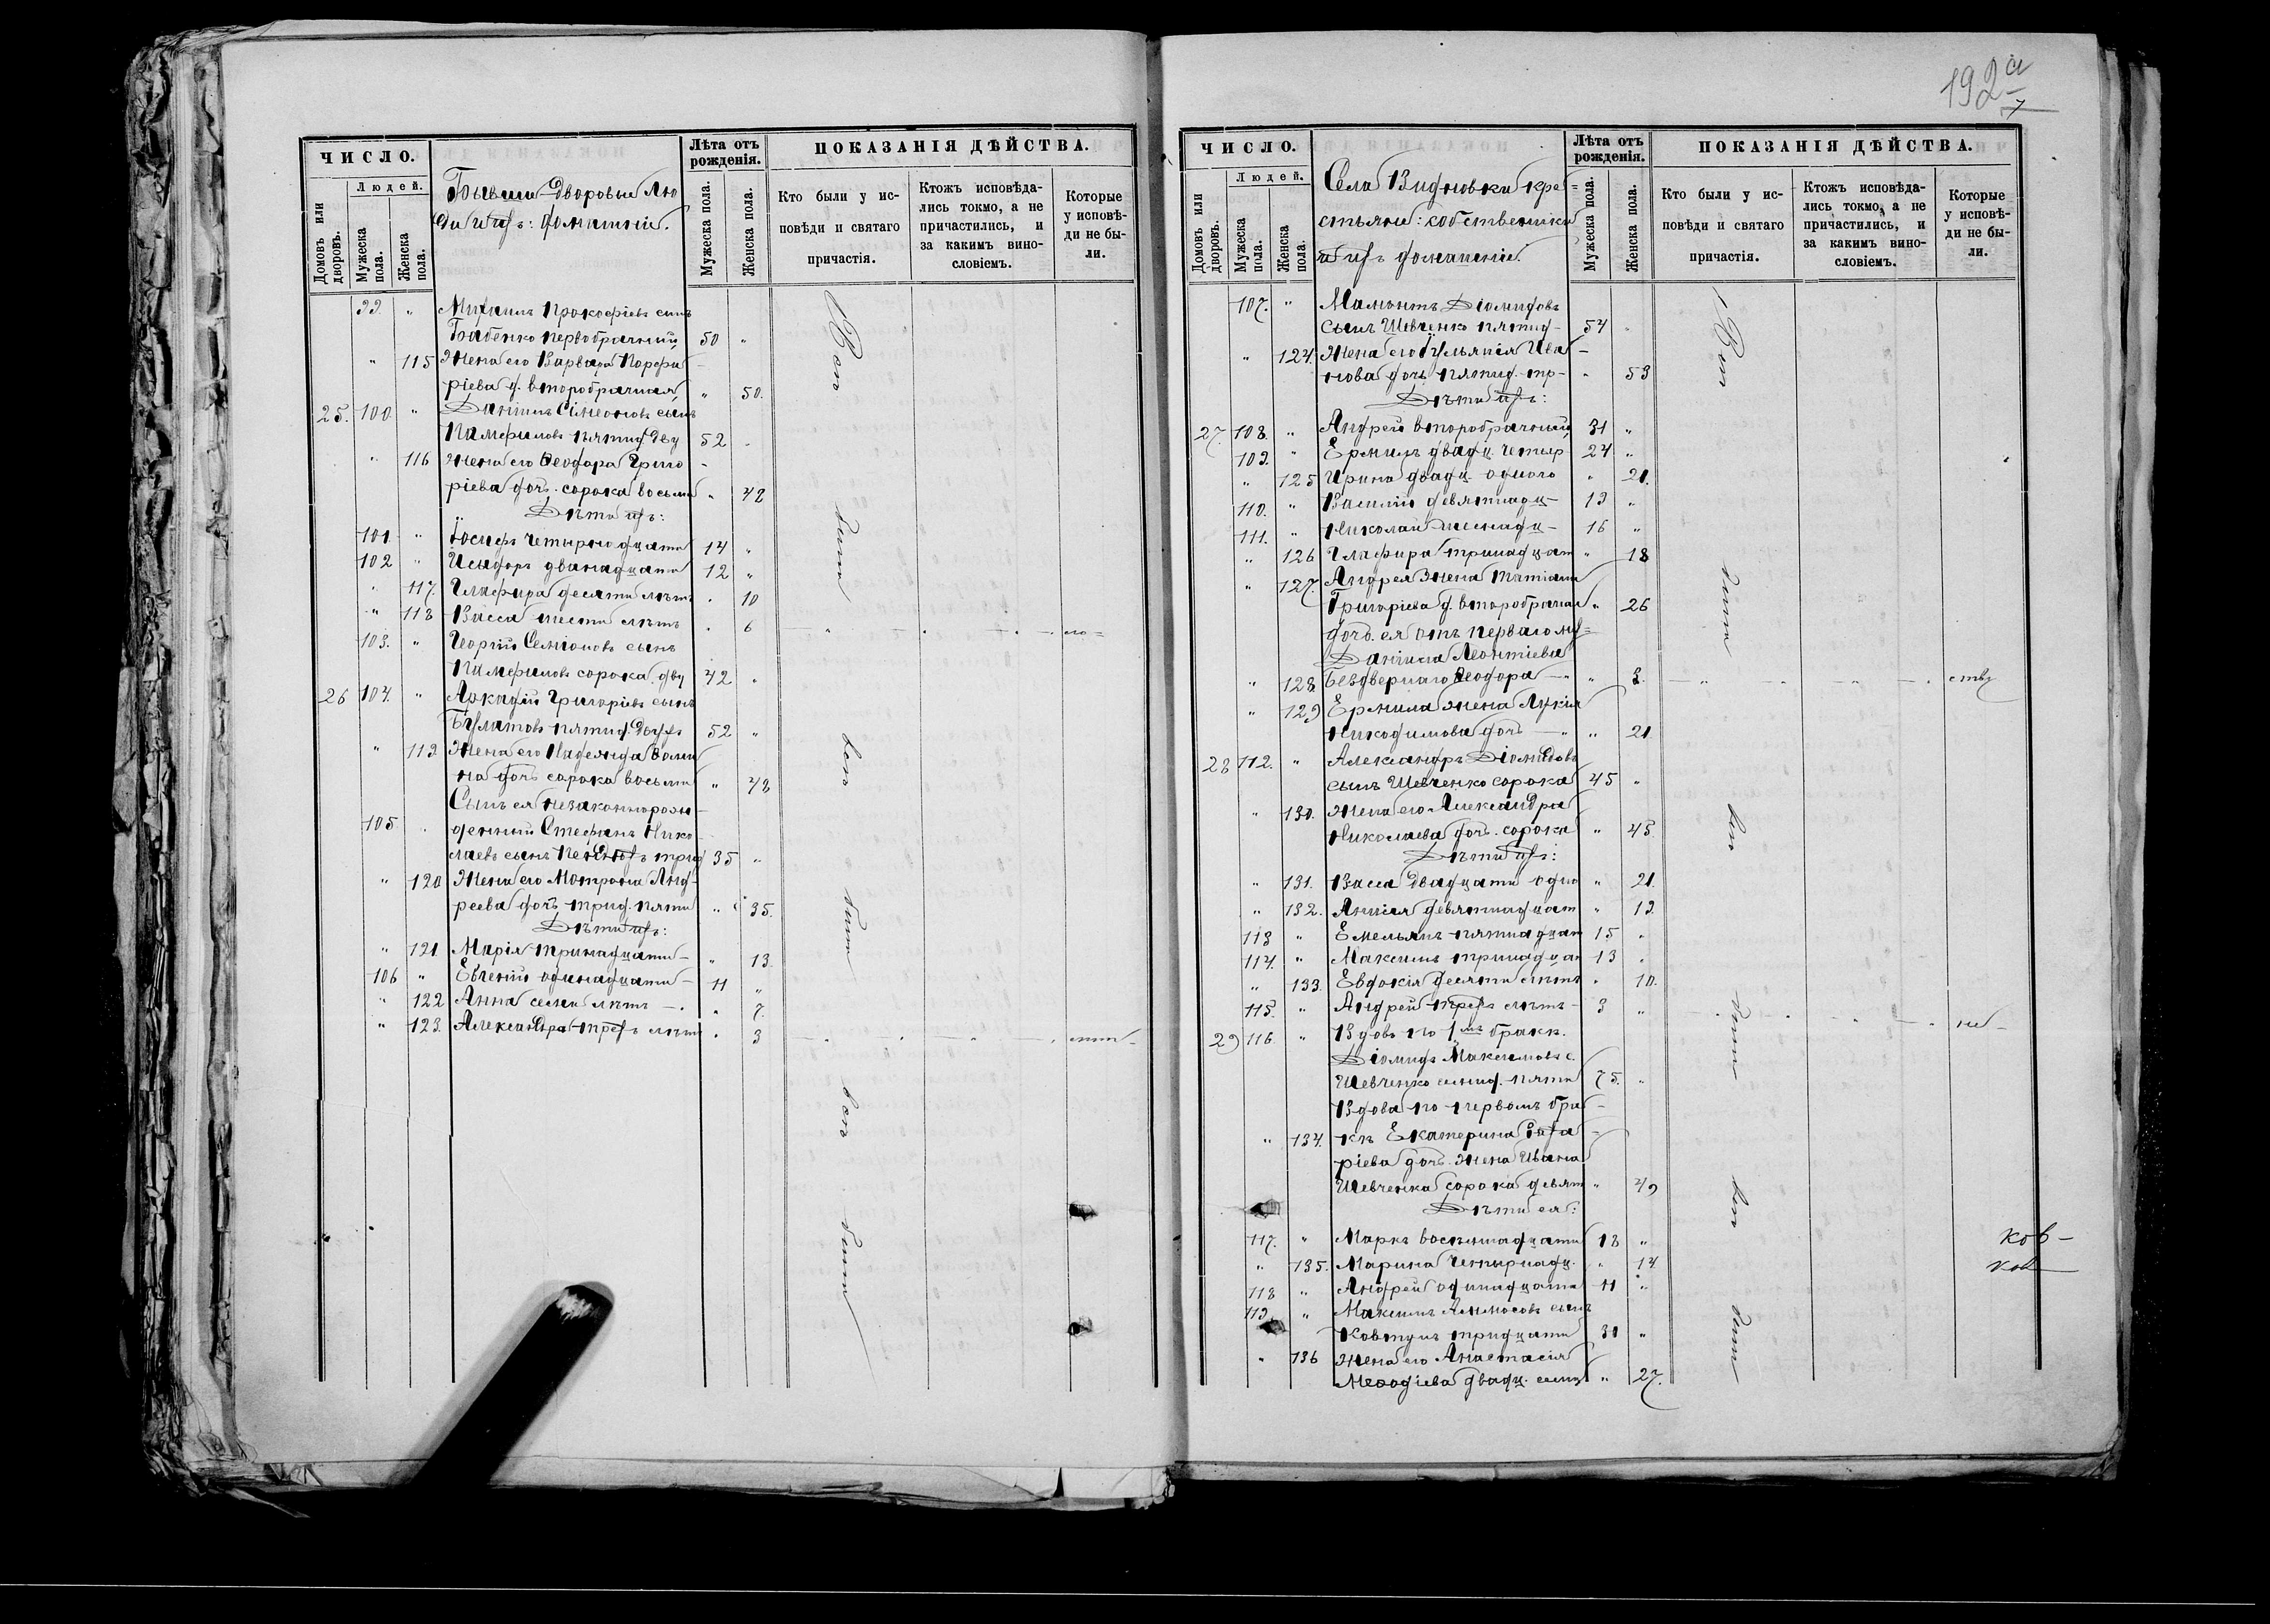 192 а
7
ЧИСЛО.
Людей.
Домовъ или дворовъ.
Мужеска пола.
Женска пола.
Бывши Дворовые Лю
ди ихъ: домашніи.
Лѣта отъ рожденія.
Мужеска пола.
Женска пола.
ПОКАЗАНІЯ ДѢЙСТВА.
Кто были у ис-
повѣди и святаго
причастія.
Ктожъ исповѣда-
лись токмо, а не
причастились, и
за какимъ вино-
словіемъ.
Которые
у исповѣ-
ди не бы-
ли.
99. " Михаилъ Прокофіевъ сынъ
Бабенко первобрачный 50 "
" 115 Жена его Варвара Порфи
ріева д. второбрачная " 50.
25. 100. " Даніилъ Сімеоновъ сынъ
Памфиловъ пятид. дву 52 "
" 116 Жена его Ѳеодора Григо
ріева дочь сорока восьми " 48
Дѣти ихъ:
101 " Іосифъ четырнадцати 14 "
102 " Исидоръ двинадцати 12 "
" 117. Глафира десяти лѣтъ " 10
" 118 Васса шести лѣтъ " 6
103. " Георгій Семіоновъ сынъ
Памфиловъ сорока дву 42 "
26 104. " Аркадій Григоріевъ сынъ
Булатовъ пятид. двухъ 52 "
" 119 Жена его Надежда Ѳоми
на дочь сорока восьми " 48
Сынъ ея незаконнорож
105 " денный Стефанъ Нико
лаевъ сынъ трид 35 "
" 120 Жена его Мотрона Анд
реева дочь трид. пяти " 35.
Дѣти ихъ:
" 121 Марія тринадцати " 13.
106 " Евгеній одинадцати 11 "
" 122 Анна семи лѣтъ " 7.
" 123. Александра трехъ лѣтъ " 3
Вси были вси были вси были
ЧИСЛО.
Людей.
Домовъ или дворовъ.
Мужеска пола.
Женска пола.
Села Видновки кре=
стьяни: собственики
и ихъ домашніе.
Лѣта отъ рожденія.
Мужеска пола.
Женска пола.
ПОКАЗАНІЯ ДѢЙСТВА.
Кто были у ис-
повѣди и святаго
причастія.
Ктожъ исповѣда-
лись токмо, а не
причастились, и
за какимъ вино-
словіемъ.
Которые
у исповѣ-
ди не бы-
ли.
107. " Мамонтъ Діомидовъ
сынъ Шевченко пятид- 54 "
" 124. Жена его Іульянія Ива-
нова дочь пятид. тр- " 53
Дѣти ихъ:
27. 108. " Андрей второбрачный 31 "
109. " Ермилъ двадц. четыр 24 "
" 125 Ирина двадц. одного " 21.
110. " Василій девятнадц- 19 "
111. " Николай шеснадц- 16 "
" 126 Глафира тринадцат " 18
" 127. Андрея Жена Татіана
Григоріева д. второбрачная " 26
дочь ея отъ перваго му=
Даніила Леонтіева
" 128 Бездвернаго Ѳеодора " 3.
ству
" 129 Ермила жена Лукія
Никодимова дочь " 21
28 112. " Александръ Діомидовъ
сынъ Шевченко сорока 45 "
" 130. Жена его Александра
Николаева дочь сорока " 45.
Дѣти ихъ:
" 131. Васса двадцати одно " 21.
" 132. Анисія девятнадцат " 19.
113 " Емельянъ пятнадцат 15 "
114. " Максимъ тринадцат 13 "
" 133. Евдокія десяти лѣтъ " 10.
115. " Андрей трехъ лѣтъ 3 "
не-
29 116. " Вдовъ по 1мъ бракѣ.
Діомидъ Максимовъ с.
Шевченко семид. пяти 75. "
Вдова по первомъ бра-
" 134. кѣ Екатерина Заха-
ріева дочь жена Ивана
Шевченка сорока девят " 49
Дѣти ея:
117. " Маркъ восемнадцати 18 "
" 135. Марина четырнадц. " 14
118 " Андрей одинадцати 11 "
119. " Максимъ Аммосовъ сынъ
Ковтунъ тридцати 31 "
" 136 Жена его Анастасія
Меѳодіева двадц. семи " 27.
Вси были вси были вси были
ков-